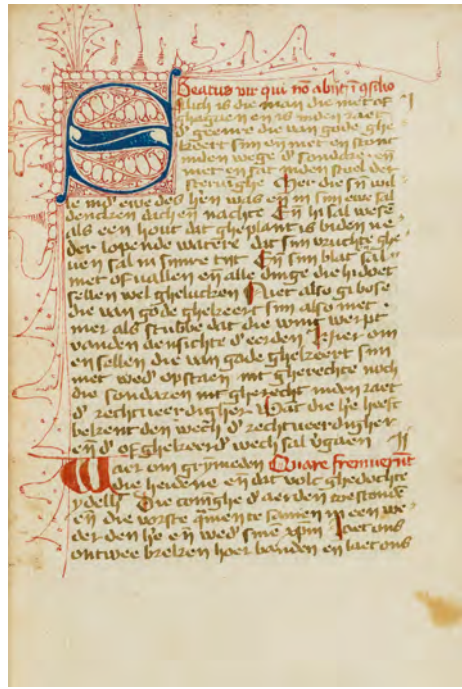 Beatus vir qui nō abijt ī ꝯsilio
Salich is die man die niet of I
ghegaen en is inden raet
d' geenre die van gode ghe
keert sijn en niet en stont
inden wege d' sondarē en
niet en sat inden stoel der
stervinghe Mer die sijn wil
le ind' ewe des hēn was eñ in sijn ewe sal
dencken dach eñ nachte Eñ hi sal wesē
als een hout dat gheplant is biden ne
der lopende watere dat sijn vruchte ghe
uen sal in sinre tijt Eñ sijn blat sal
niet of vallen eñ alle dinge die hi doet
sellen wel ghelucken Niet also gi bose
die van gode ghekeert sijn also niet
mer als stubbe dat die wint werpt
vanden aensichte d' eerden Hier om
en sellen die van gode ghekeert sijn
niet wed' opstaen int gherechte noch
die sondaren int gherecht inden raet
d' rechtueerdigher Wāt die h̄e heeft
bekent den wech d' rechtueerdigher
eñ d' of ghekeerd' wech sal v'gaen II
Waer om grymeden Quare fremuerūt
die heidene eñ dat volc ghedochte
Die coninghe d' aerden toe stondē
eñ die vorste quamen te samen in een we
der den h̄e eñ wed' sinē xpm Laet ons
ontwee breken hoer banden en laet ons